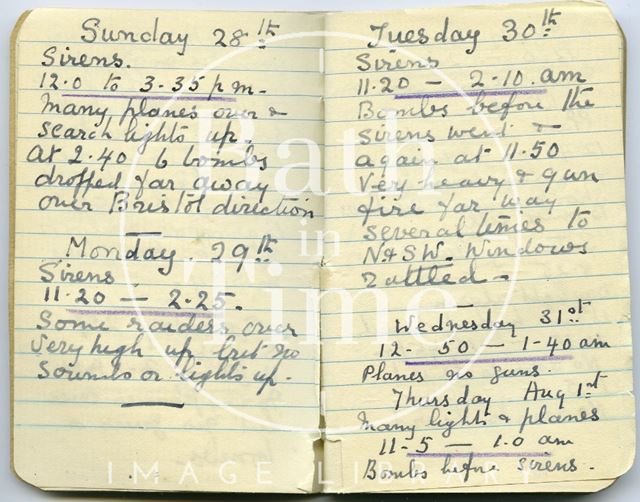 Sunday 28th
Sirens.
12.0 to 3.35 p m.
Many planes over &
search lights up.
At 2.40 6 bombs
dropped far away
over Bristol direction
Monday. 29th
Sirens
11.20 — 2.25.
Some raiders over
Very high up but no
Sounds or lights up.
Tuesday 30th
Sirens
11.20 — 2.10. am
Bombs before the
Sirens went &
again at 11.50
Very heavy & gun
fire far way
several times to
N & SW. Windows
rattled —
Wednesday 31st
12. 50 — 1.40 am
Planes no guns.
Thursday Aug 1st
Many lights & planes
11.5 — 1.0 am
Bombs before sirens.
Bath
in
Time
IMAGE LIBRARY